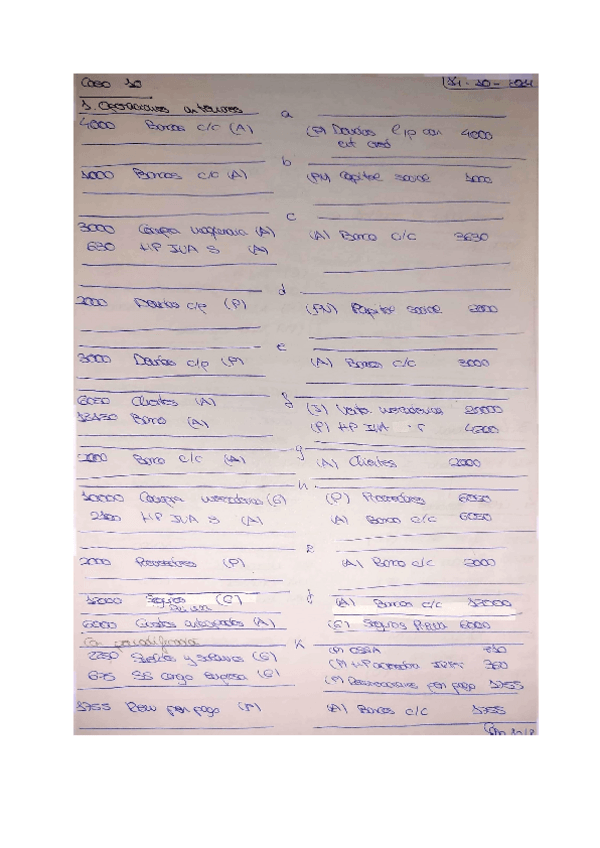 Caso 10
1. Operaciones anteriores
a
4000 Bancos c/c (A) (P) Deudas l/p con 4000
ent créd
b
1000 Bancos c/c (A) (PN) Capital social 1000
c
3000 Compra (A) (A) Banco c/c 3630
630 HP IVA S (A)
d
2000 Deudas c/p (P) (PN) Capital social
e
3000 Deudas c/p (P) (A) Bancos c/c 3000
f
6050 Clientes (A) (I) Venta mercaderías 20000
Banco (A) (P) HP IVA R 4200
g
2000 Banco c/c (A) (A) Clientes 2000
h
10000 Compra mercaderías (G) (P) Proveedores 6050
2100 HP IVA S (A) (A) Bancos c/c 6050
2000 Proveedores (P) (A) Banco c/c 2000
j
12000 Seguros (G) (A) Bancos c/c 12000
6000 Gastos anticipados (A) (G) Seguros 6000
K
2250 Sueldos y salarios (G) (P) OSSA
675 SS cargo empresa (G) (P) HP acreedora IRPF 360
(P) Remuneraciones pen pago 1755
1755 Rem pen pago (P) (A) Bancos c/c 1755